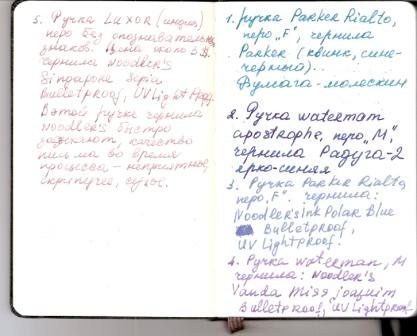 5. Ручка LUXOR (индия)
перо без опознавательн.
знаков. Цена около 3$.
чернила Noodler's
Singapore seria
Bulletproof, UV Light
В этой ручке чернила
Noodler's быстро
засыхают, качество
письма во время
процесса – неприятное,
скрипучее, сухое.
1. ручка Parker Rialto,
перо „F", чернила
Parker (квинк, сине-
черный).
Бумага-молескин
2. Ручка waterman
apostrophe, перо „М",
чернила Радуга-2
ярко-синяя
3. Ручка Parker Rialto,
перо „F". чернила:
Noodler's Ink Polar Blue
Bulletproof,
UV Lightproof.
4. Ручка waterman, М
чернила: Noodler's
Vanda Miss Joaquim
Bulletproof, UV Lightproof